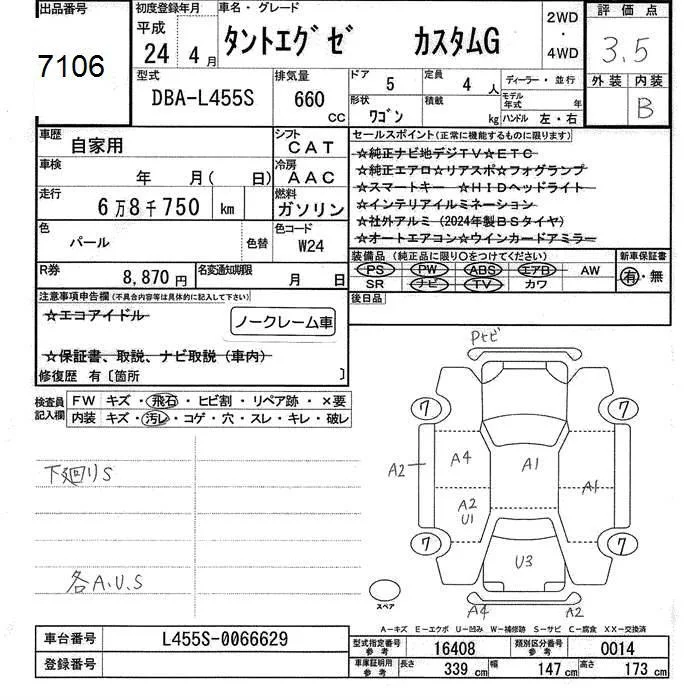 出品番号 初度登録年月 車名・グレード 2WD ・ 4WD 評価点
7106 平成 24年 4月 タントエグゼ カスタムG 3.5
型式 排気量 ドア 5 定員 4人 ディーラー・並行 外装 内装
DBA-L455S 660 CC 形状 ワゴン 積載 kg モデル年式 年 ハンドル 左・右 B
車歴 自家用 シフト CAT セールスポイント(正常に機能するものに限ります)
車検 年 月( 日) 冷房 AAC ☆純正ナビ地デジTV☆ETC
☆純正エアロ☆リアスポ☆フォグランプ
走行 6万8千750 km 燃料 ガソリン ☆スマートキー ☆HIDヘッドライト
☆インテリアイルミネーション
色 パール 色替 色コード W24 ☆社外アルミ(2024年製BSタイヤ)
☆オートエアコン☆ウインカードアミラー
装備品(純正品に限り○をつけてください) 新車保証書
R券 8,870円 名変通知期限 月 日 PS PW ABS エアB AW 有・無
SR ナビ TV カワ
注意事項申告欄(不具合内容等は具体的に記入して下さい) 後日品
☆エコアイドル ノークレーム車
☆保証書、取説、ナビ取説(車内)
修復歴 有〔箇所 〕
検査員記入欄 FW キズ・飛石・ヒビ割・リペア跡・×要
内装 キズ・汚レ・コゲ・穴・スレ・キレ・破レ
Pトビ
7 7
下廻りS
A2 A4 A1 A1
A2 U1
7 7
U3
各A.U.S
スペア A4 A2
A-キズ E-エクボ U-凹み W-補修跡 S-サビ C-腐食 XX-交換済
車台番号 L455S-0066629 型式指定番号 参考 16408 類別区分番号 参考 0014
登録番号 車庫証明用 参考 長さ 339cm 幅 147cm 高さ 173cm